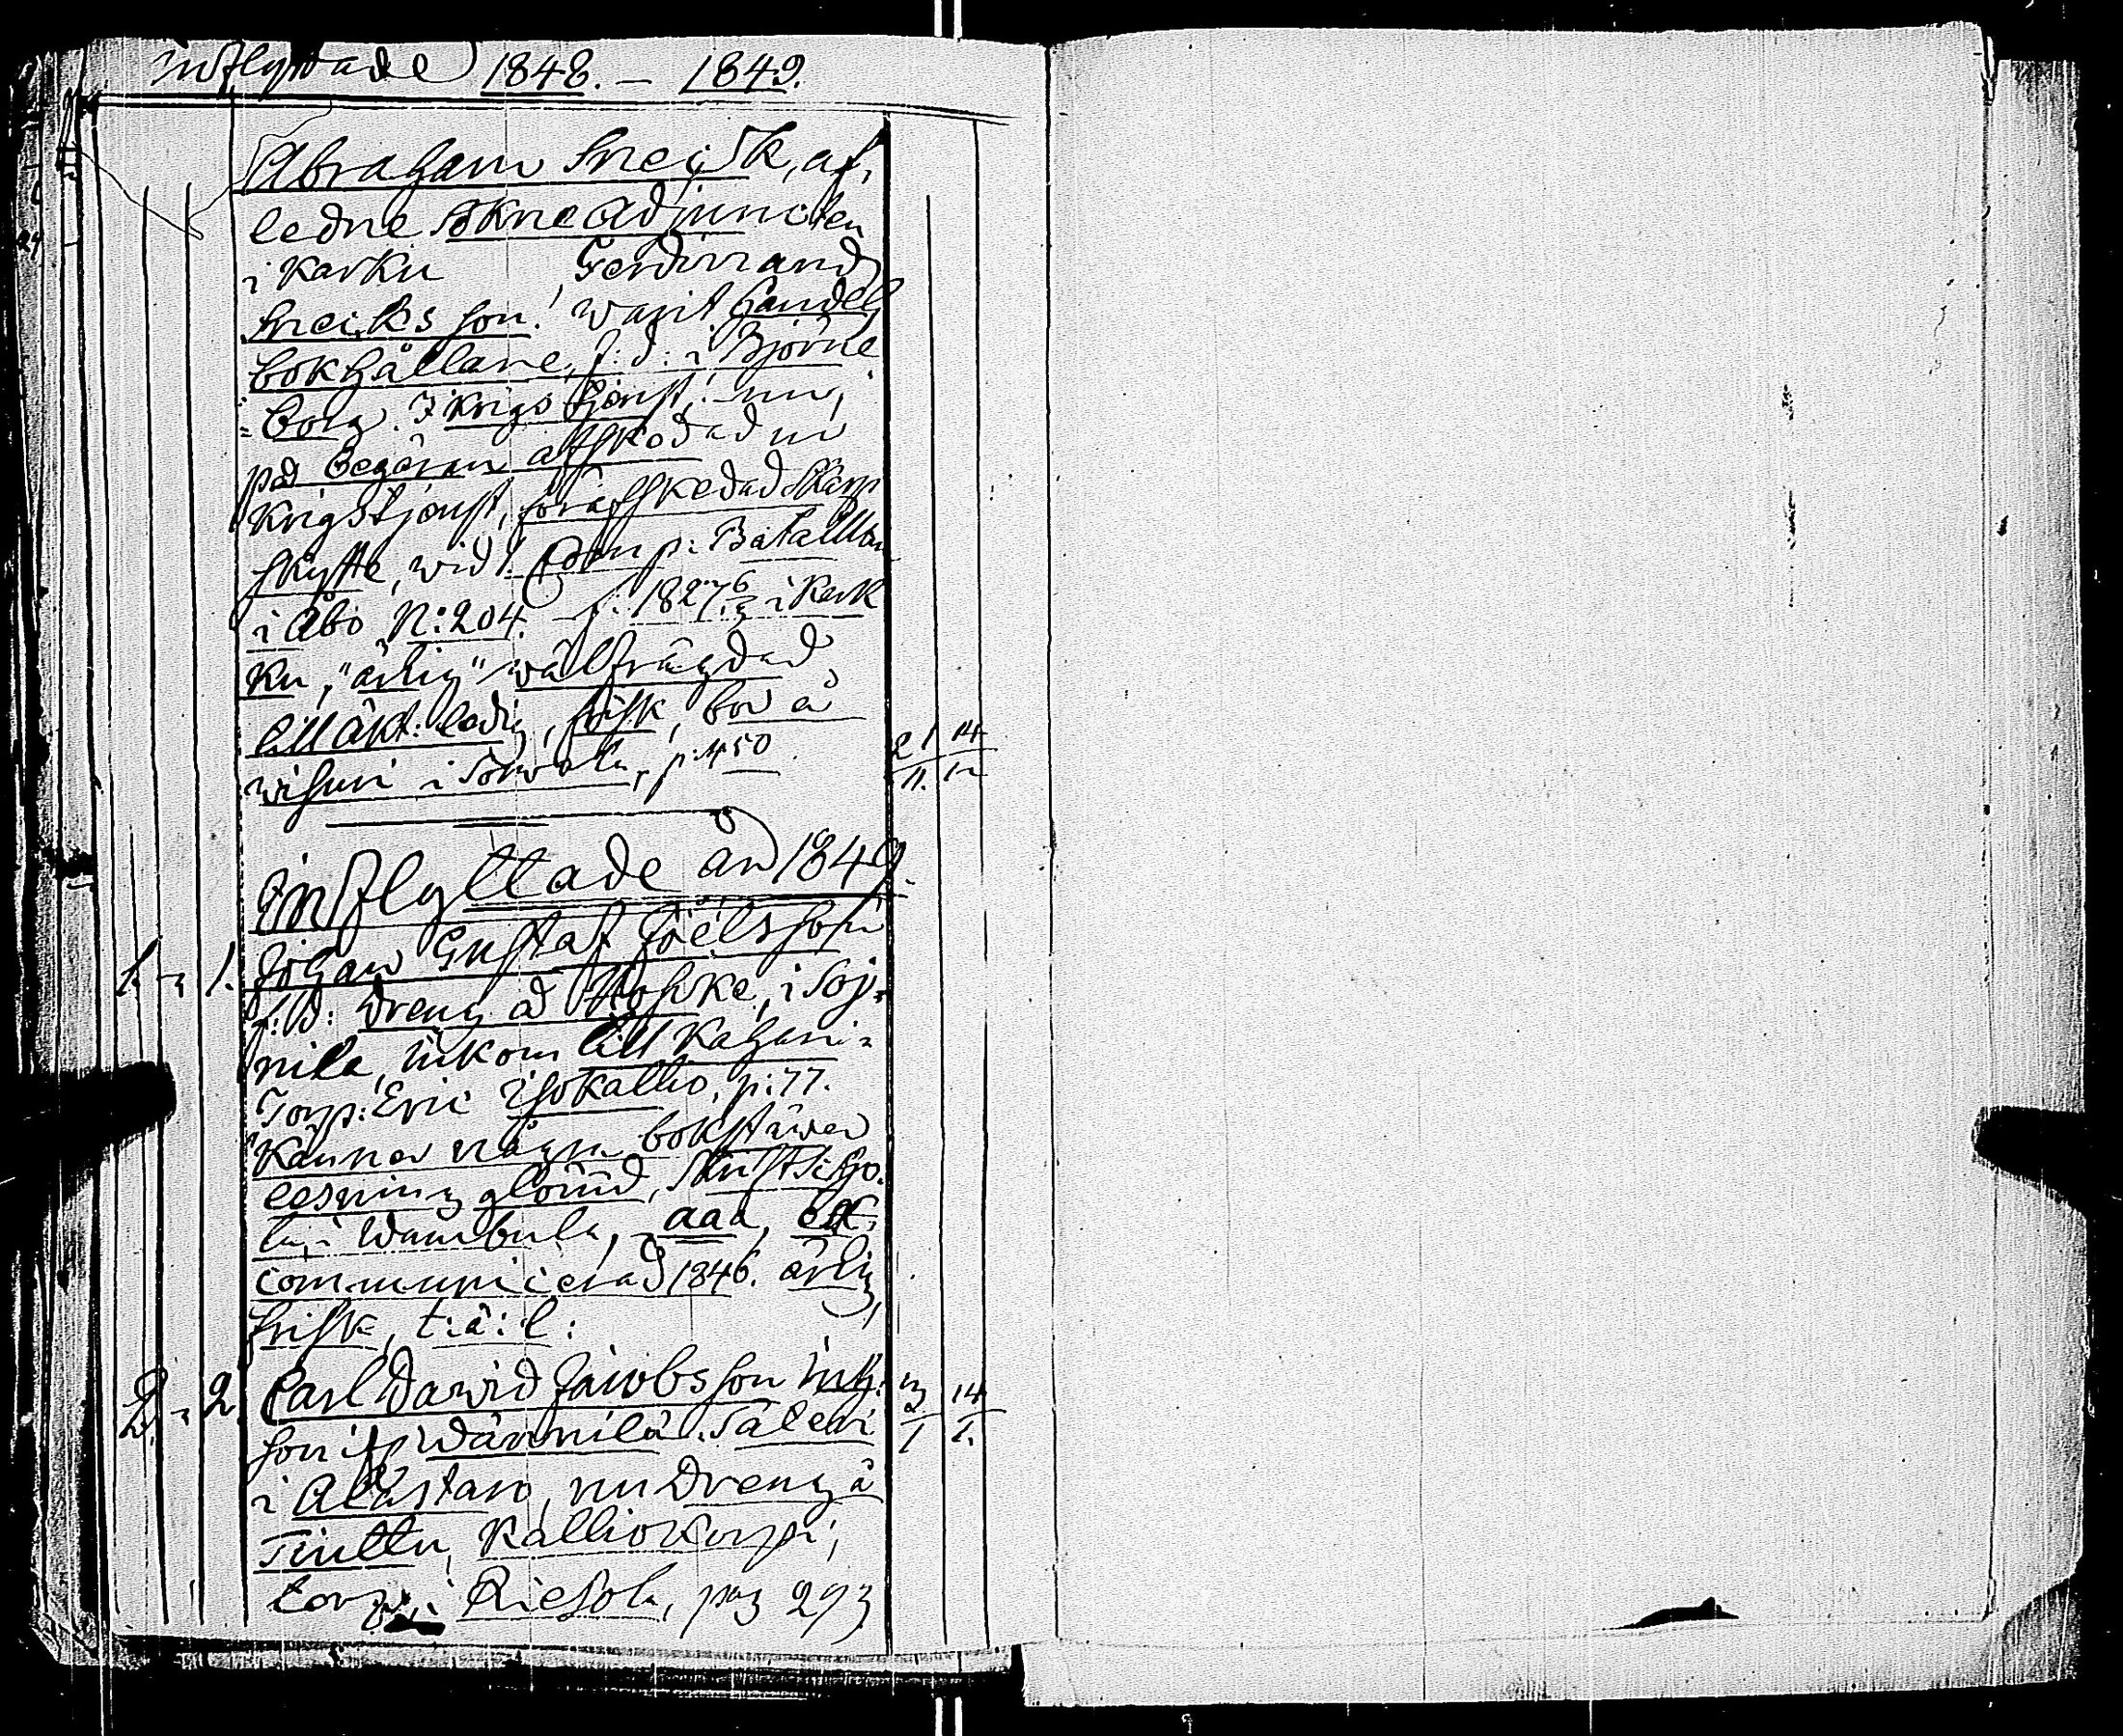 Inflyttade 1848. — 1849.
Abraham Sneiik, af,
ledne Sokne Adjuncten
i Karku Ferdinand
Sneiiks son! warit handels
bokhållare, f: d: i Björne
=borg. I krigs tjenst! nu,
på begäran afskedad ur
krigstjenst, för afskedad Skarp
skytte, wid 1. Comp: Bataillon
i Åbo N:204. f: 1827 6/3 i Kark
ku, "ärlig" wälfräjdad
till äkt: ledig, frisk, bor å
wisuri i Sorwola, p: 450 21/11. 14/12
Inflyttade år 1849.
1. 1. Johan Gustaf Joëlsson
f: d: Dreng å, i Soj-
nila, inkom till Kahari=
Torp: Eric Isokallio, p: 77.
Känner några bokstäwer
läsning glömd, Skriftskho.
la, i Wambula, - aaa, ej
communicerad 1846. ärlig,
frisk, t: ä: l:
2. 2. Carl Dawid Jacobsson inh: 3/1 14/1.
son ifr Wännilä. Säteri
i Alastaro, nu Dreng å
Tiuttu, Kalliokorpi,
torp i Riesola, pag 293